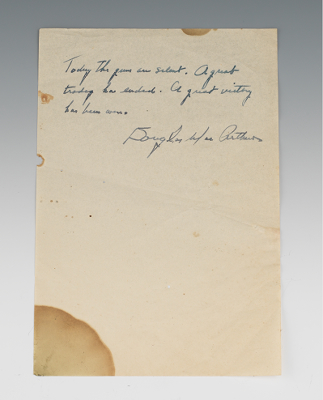 Today the guns are silent. A great
tragedy has ended. A great victory
has been won.
Douglas MacArthur